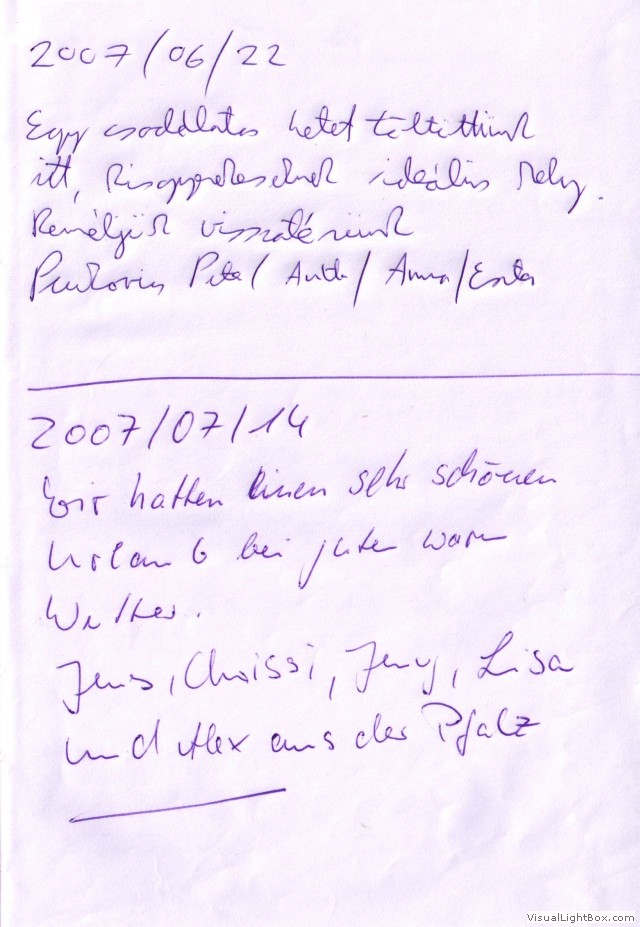 2007/06/22
Egy csodálatos hetet töltöttünk
itt, kisgyerekeseknek ideális hely.
Reméljük visszatérünk
Péter / Anita / Anna / Eszter
2007/07/14
Wir hatten einen sehr schönen
Urlaub bei guten warm
Wetter.
Jens, Chrissi, Jeny, Lisa
und Alex aus der Pfalz
VisualLightBox.com